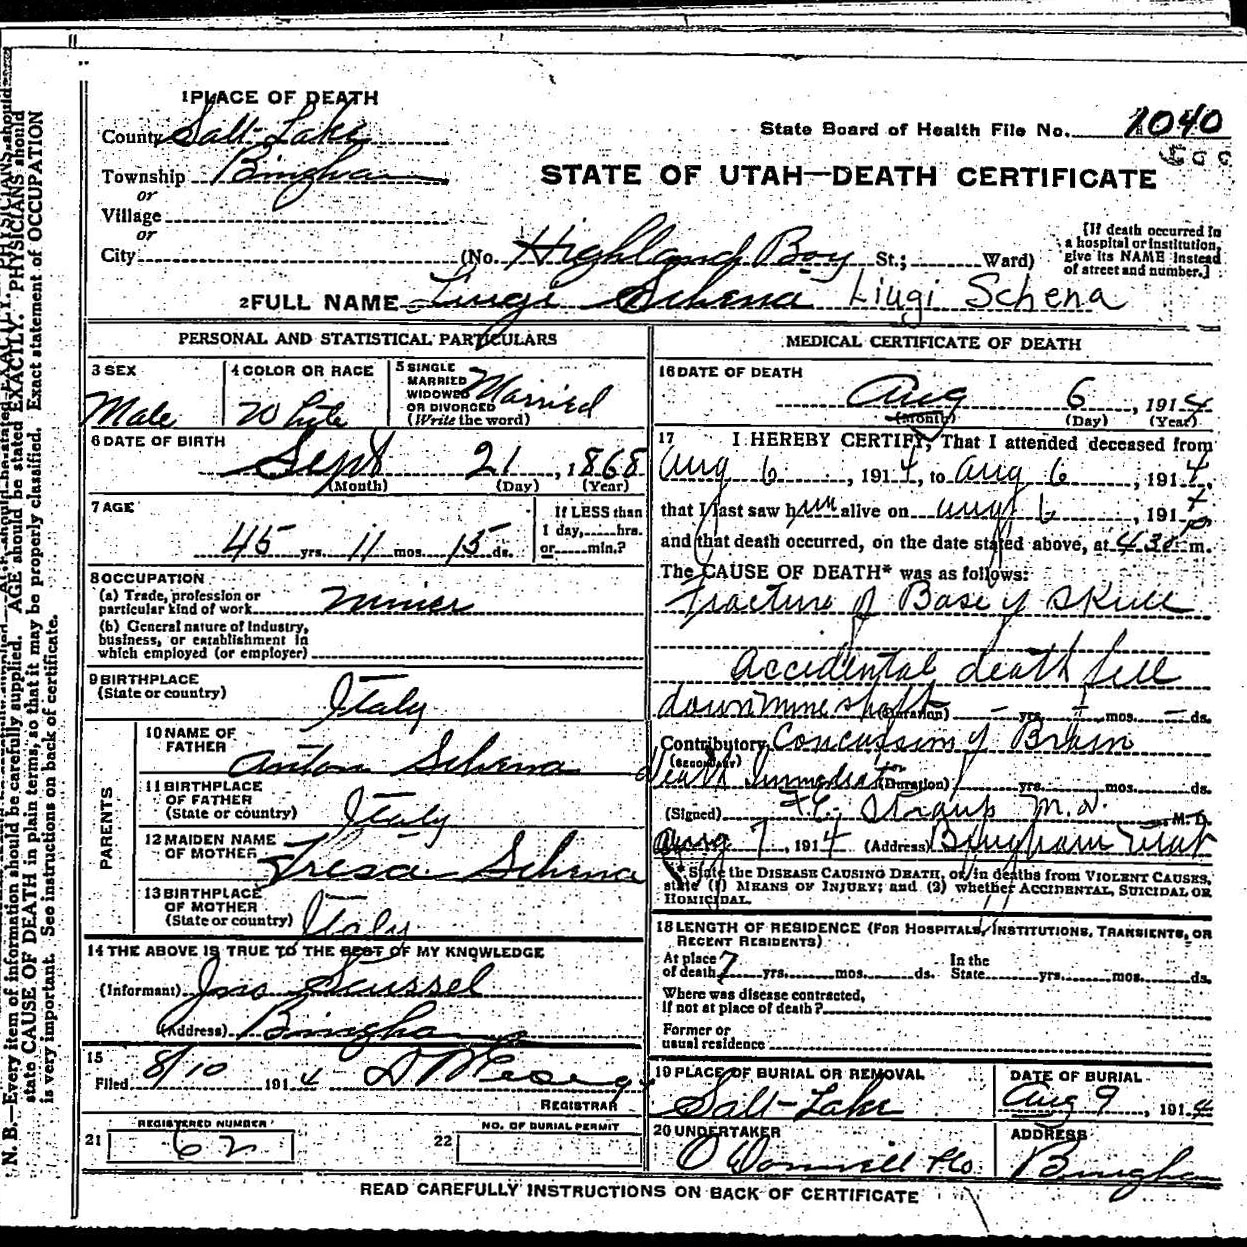 1 PLACE OF DEATH
County Salt-Lake
Township Bingham
or
Village
or
City
State Board of Health File No. 1040
STATE OF UTAH—DEATH CERTIFICATE
(No. Highland Boy St.; Ward)
[If death occurred in
a hospital or institution,
give its NAME instead
of street and number.]
2 FULL NAME Liugi Schena Liugi Schena
PERSONAL AND STATISTICAL PARTICULARS
3 SEX
Male
4 COLOR OR RACE
White
5 SINGLE
MARRIED
WIDOWED
OR DIVORCED
(Write the word)
Married
6 DATE OF BIRTH
Sept 21, 1868
(Month) (Day) (Year)
7 AGE
45 yrs. 11 mos. 15 ds.
If LESS than
1 day, hrs.
or min.?
8 OCCUPATION
(a) Trade, profession or
particular kind of work miner
(b) General nature of industry,
business, or establishment in
which employed (or employer)
9 BIRTHPLACE
(State or country) Italy
PARENTS
10 NAME OF
FATHER Anton Schena
11 BIRTHPLACE
OF FATHER
(State or country) Italy
12 MAIDEN NAME
OF MOTHER Tresa Schena
13 BIRTHPLACE
OF MOTHER
(State or country) Italy
14 THE ABOVE IS TRUE TO THE BEST OF MY KNOWLEDGE
(Informant) Jno Scussel
(Address) Bingham
15
Filed 8/10 1914
REGISTRAR
21 REGISTERED NUMBER
62
22 NO. OF BURIAL PERMIT
MEDICAL CERTIFICATE OF DEATH
16 DATE OF DEATH
Aug 6, 1914
(Month) (Day) (Year)
17 I HEREBY CERTIFY, That I attended deceased from
Aug 6, 1914, to Aug 6, 1914,
that I last saw him alive on Aug 6, 1914
and that death occurred, on the date stated above, at 430 p m.
The CAUSE OF DEATH* was as follows:
Fracture of Base of Skull
Accidental death fell
down mine shaft (Duration) - yrs. - mos. - ds.
Contributory Concussion of Brain
(SECONDARY)
death Immediate (Duration) yrs. mos. ds.
(Signed) F.E. Straup M.D., M. D.
Aug 7, 1914 (Address) Bingham Utah
* State the DISEASE CAUSING DEATH, or, in deaths from VIOLENT CAUSES,
state (1) MEANS OF INJURY; and (2) whether ACCIDENTAL, SUICIDAL OR
HOMICIDAL.
18 LENGTH OF RESIDENCE (FOR HOSPITALS, INSTITUTIONS, TRANSIENTS, OR
RECENT RESIDENTS)
At place
of death 7 yrs. mos. ds.
In the
State yrs. mos. ds.
Where was disease contracted,
if not at place of death?
Former or
usual residence
19 PLACE OF BURIAL OR REMOVAL
Salt-Lake
DATE OF BURIAL
Aug 9, 1914
20 UNDERTAKER
O Donnell & Co.
ADDRESS
Bingham
READ CAREFULLY INSTRUCTIONS ON BACK OF CERTIFICATE
N. B.—Every item of information should be carefully supplied. AGE should be stated EXACTLY. PHYSICIANS should
state CAUSE OF DEATH in plain terms, so that it may be properly classified. Exact statement of OCCUPATION
is very important. See instructions on back of certificate.